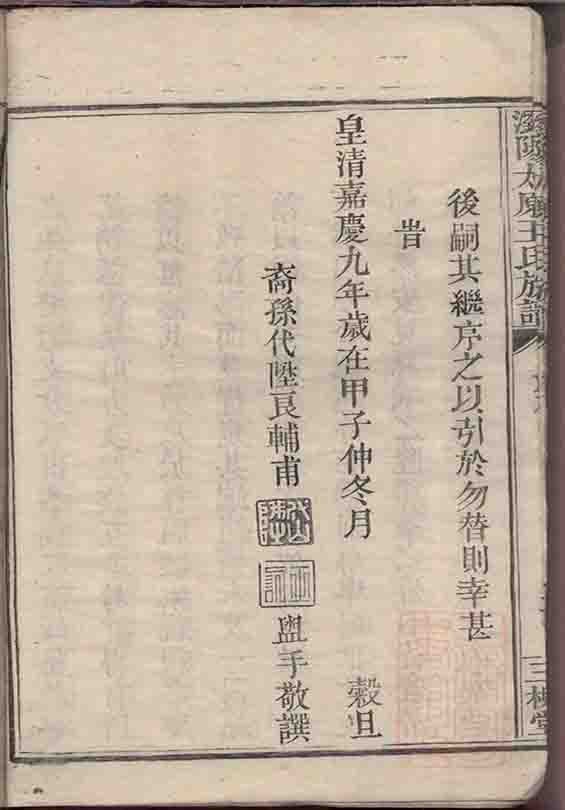 後嗣其繼序之以引於勿替則幸甚
旹
皇清嘉慶九年歲在甲子仲冬月 穀旦
裔孫代陞良輔甫 盥手敬譔
太原王氏族譜
三槐堂